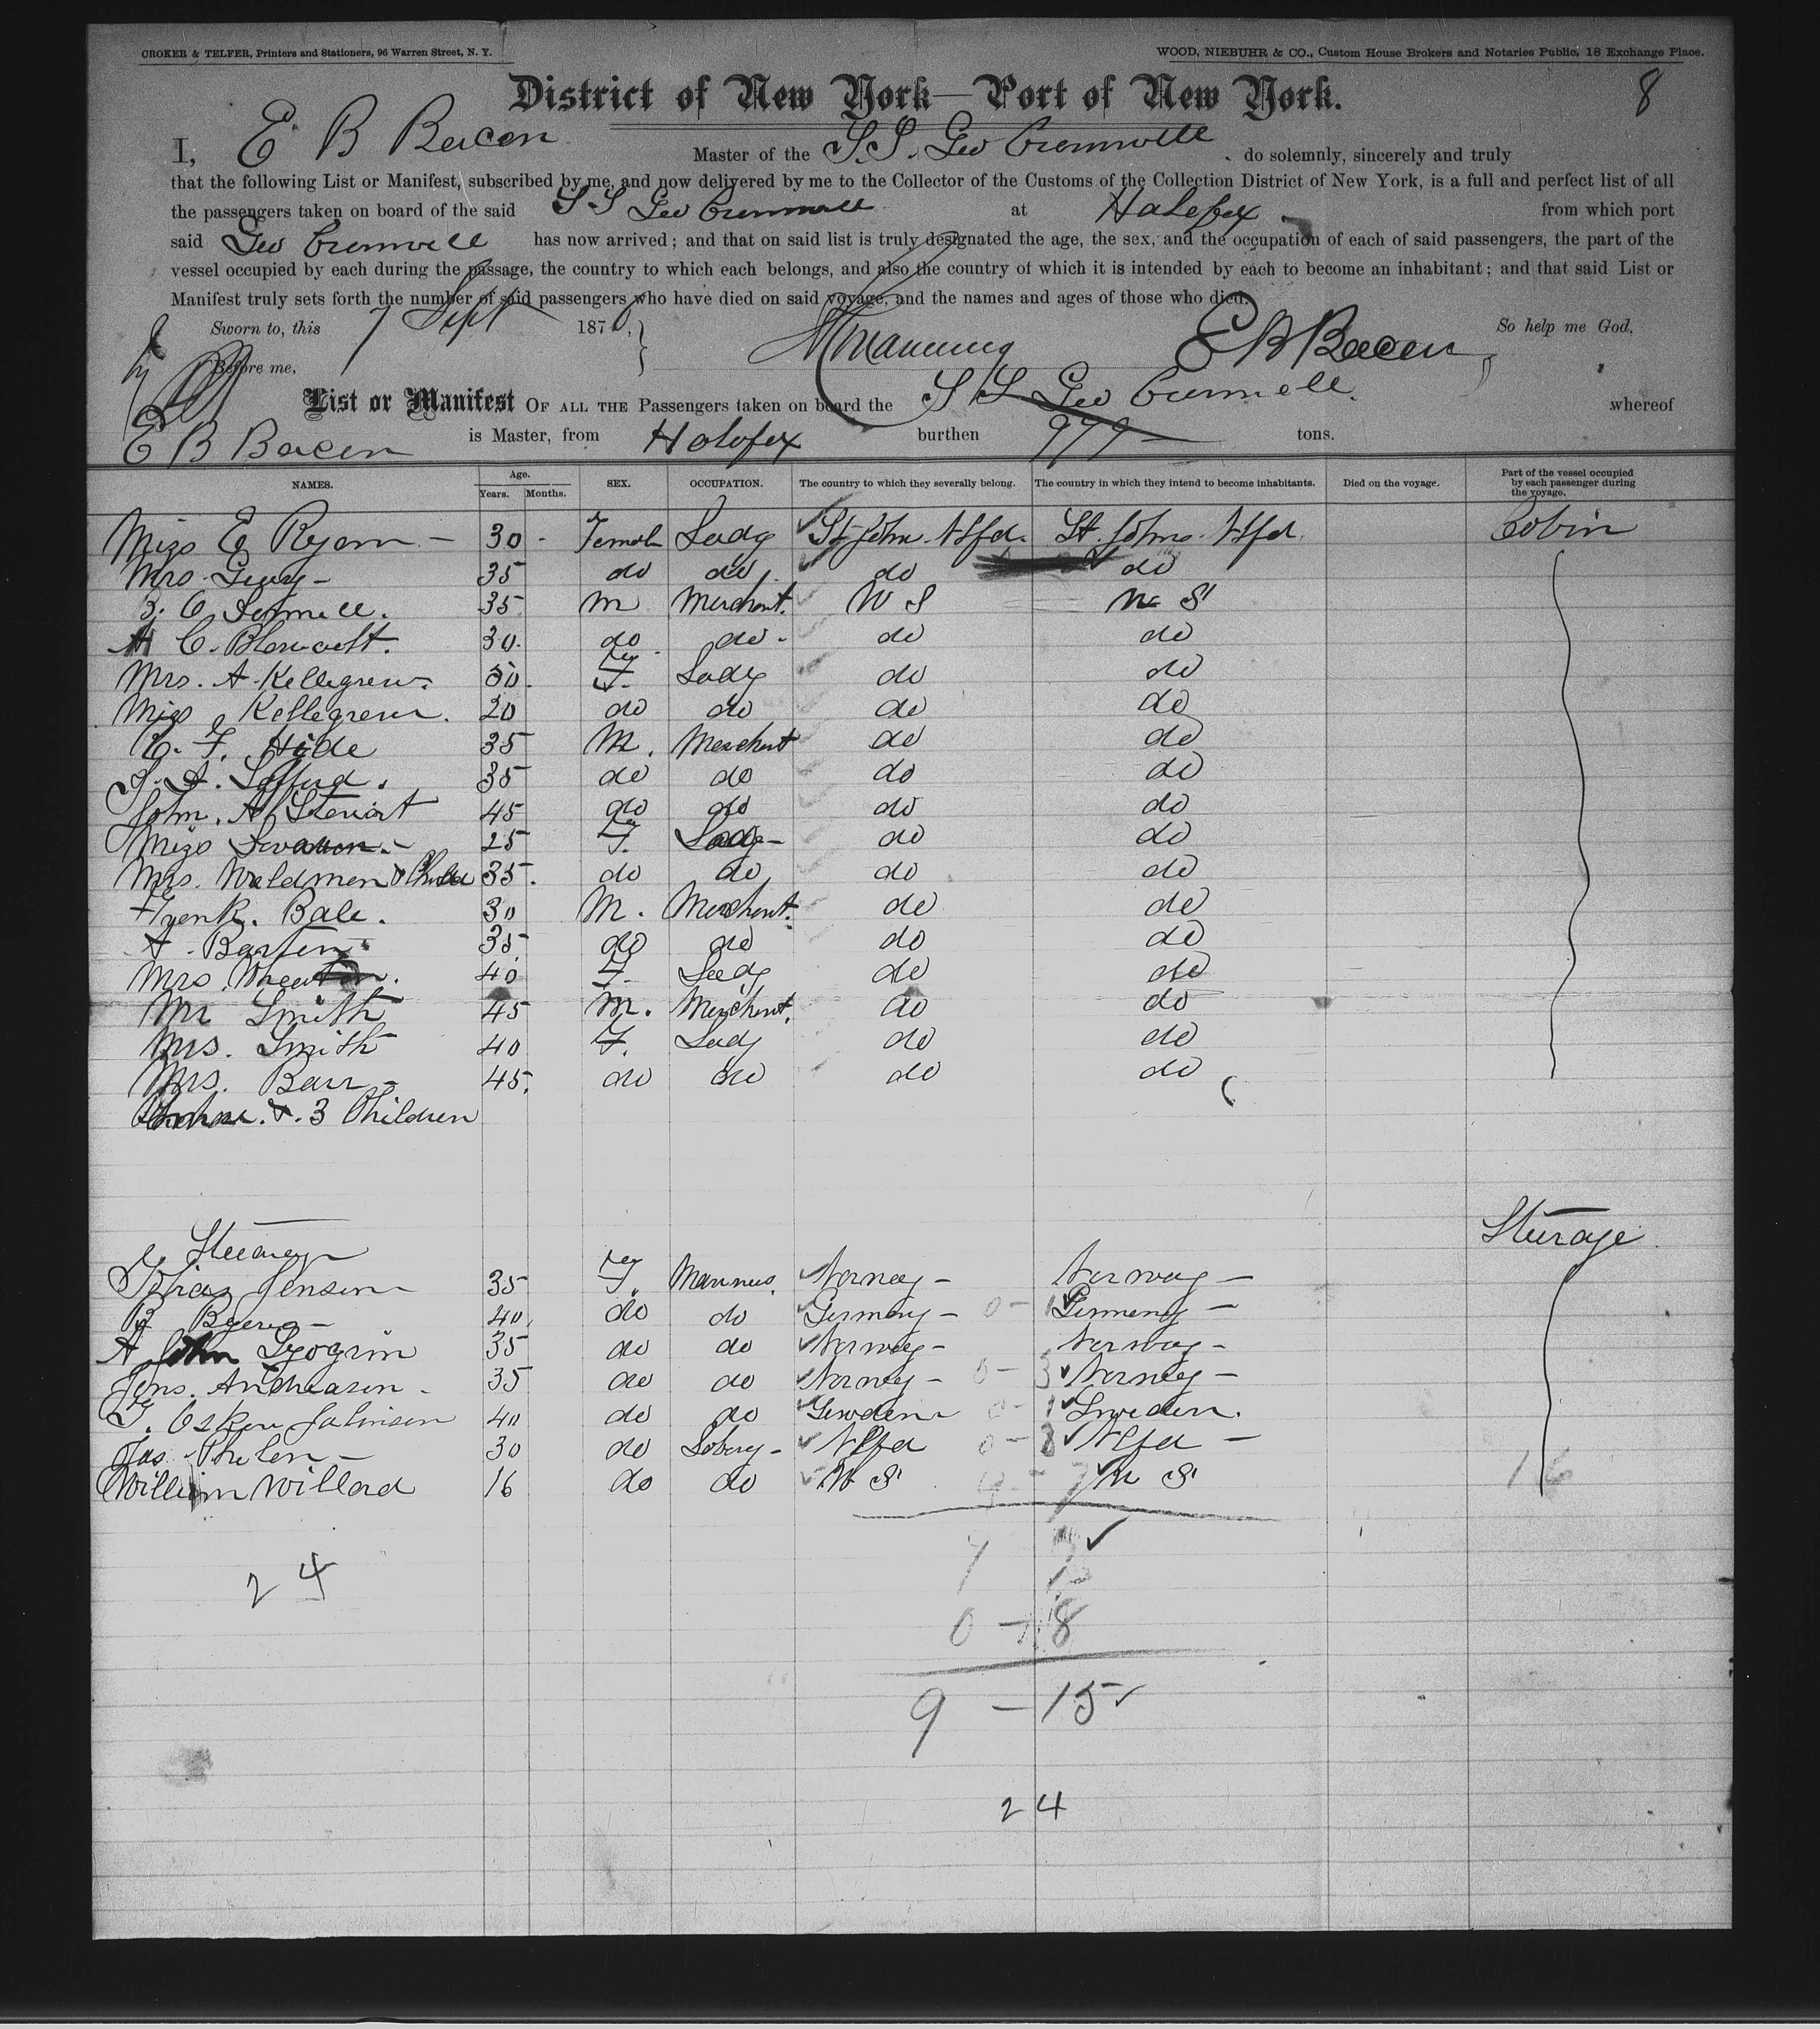 CROKER & TELFER, Printers and Stationers, 96 Warren Street, N. Y.
WOOD, NIEBUHR & CO., Custom House Brokers and Notaries Public, 18 Exchange Place.
8
District of New York—Port of New York.
I, E B Bacon Master of the S.S. Geo Cromwell do solemnly, sincerely and truly
that the following List or Manifest, subscribed by me, and now delivered by me to the Collector of the Customs of the Collection District of New York, is a full and perfect list of all
the passengers taken on board of the said S S Geo Cromwell at Halefex from which port
said Geo Cromwell has now arrived; and that on said list is truly designated the age, the sex, and the occupation of each of said passengers, the part of the
vessel occupied by each during the passage, the country to which each belongs, and also the country of which it is intended by each to become an inhabitant; and that said List or
Manifest truly sets forth the number of said passengers who have died on said voyage, and the names and ages of those who died.
Sworn to, this 7 Sept 187 E B Bacon So help me God,
Before me,
List or Manifest OF ALL THE Passengers taken on board the S S Geo Cromwell. whereof
E B Bacon is Master, from Halefex burthen 979 tons.
NAMES. Age. Years. Months. SEX. OCCUPATION. The country to which they severally belong. The country in which they intend to become inhabitants. Died on the voyage. Part of the vessel occupied by each passenger during the voyage.
Miss E Ryan - 30 - Female Lady St John Nfd. St. Johns Nfd. Cabin
Mrs. 35 do do do do
35 M Merchant. U S U S
H C. 30. do do do do
Mrs. A. Kellegrew. 50. F. Lady do do
Miss Kellegrew. 20 do do do do
C. F. Hide 35 M. Merchant do do
35 do do do do
John. A. Stewart 45 do do do do
Miss 25 F. Lady do do
Mrs. Waldmen & Child 35. do do do do
Frank. Bale. 30 M. Merchant. do do
A. 35 do do do do
Mrs 40 F. Lady do do
Mr Smith 45 M. Merchant. do do
Mrs. Smith 40 F. Lady do do
Mrs. Barr - 45. do do do do
& 3 Children
Steerage
35 Norway - Norway -
B 40 do do Germany - 0 - 1 Germany -
A 35 do do Norway - Norway -
Jens. Andreasen - 35 do do Norway - 0 - 3 Norway -
40 do do Sweden 0 - 1 Sweden.
Jas. Phelen - 30 do do Nfd 0 - Nfd -
William Willard 16 do do U S U S 16
24
0 - 8
9 - 15
24